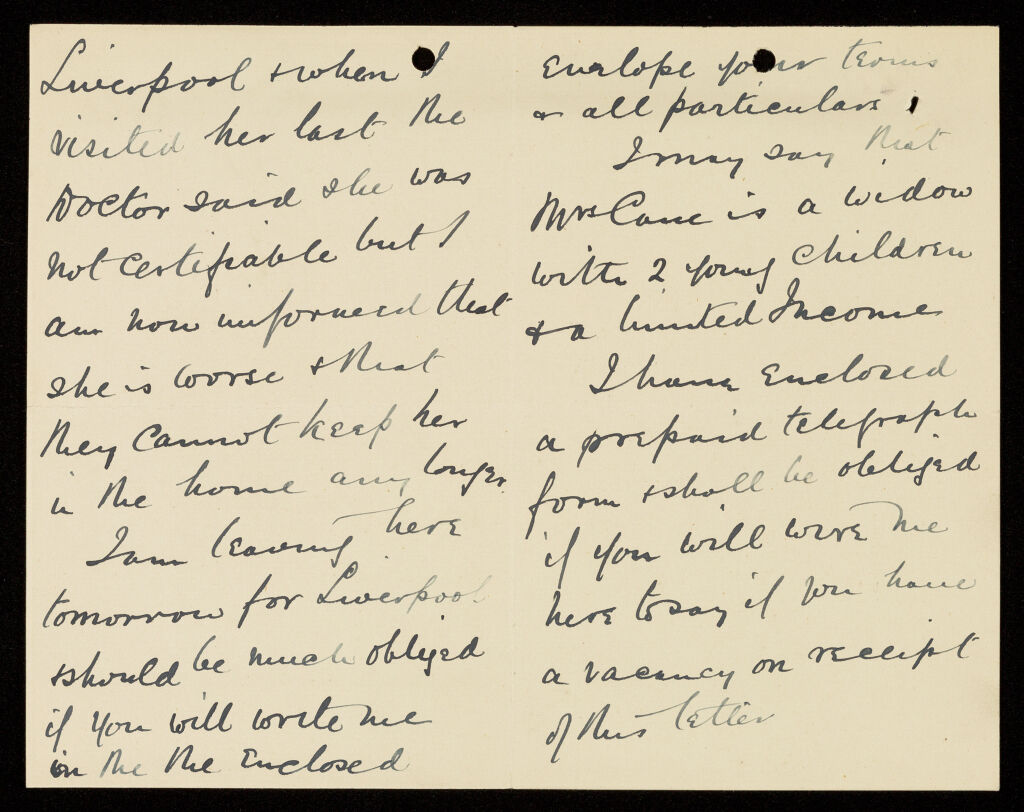 Liverpool & when I
visited her last the
Doctor said she was
not certifiable but I
am now informed that
she is worse & that
they cannot keep her
in the home any longer.
I am leaving here
tomorrow for Liverpool
& should be much obliged
if you will write me
in the the Enclosed
Envelope your terms
& all particulars.
I may say that
Mrs Cane is a widow
with 2 young children
& a limited Income
I have Enclosed
a prepaid telegraph
form & shall be obliged
if you will wire me
here to say if you have
a vacancy on receipt
of this letter